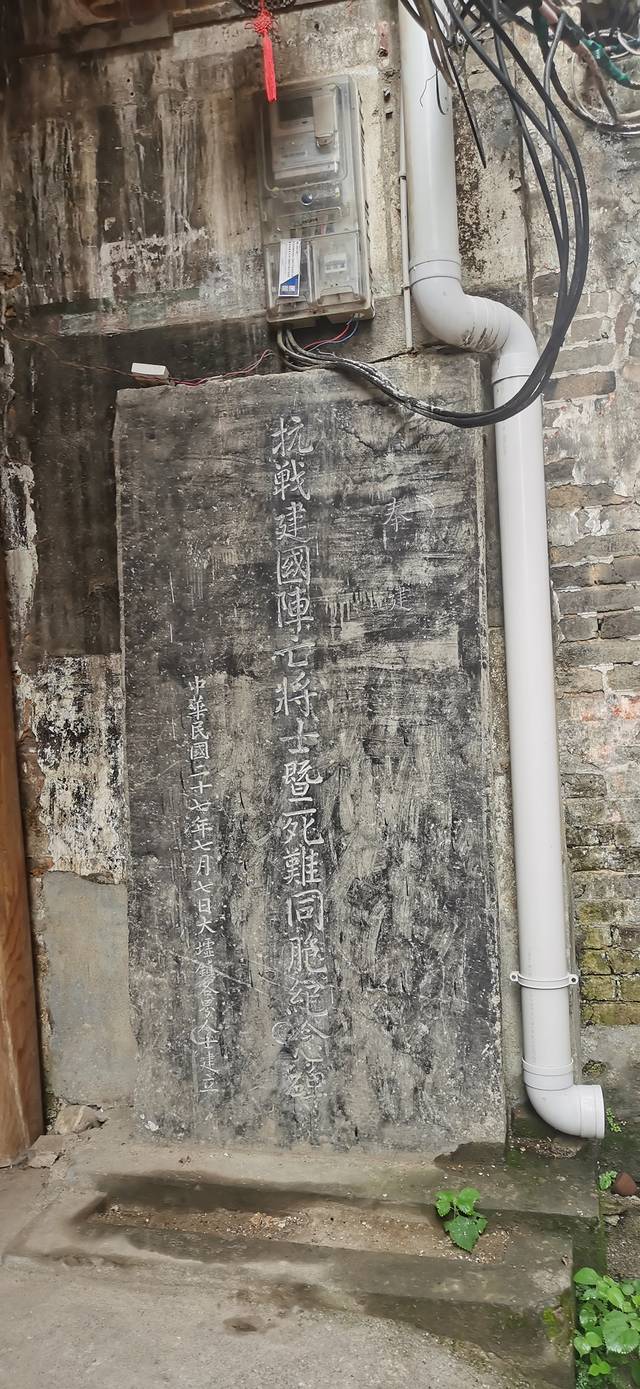 奉建
抗戦建國陣亡將士暨死難同胞紀念碑
中華民國二十七年七月七日大墟鎮各界人士建立